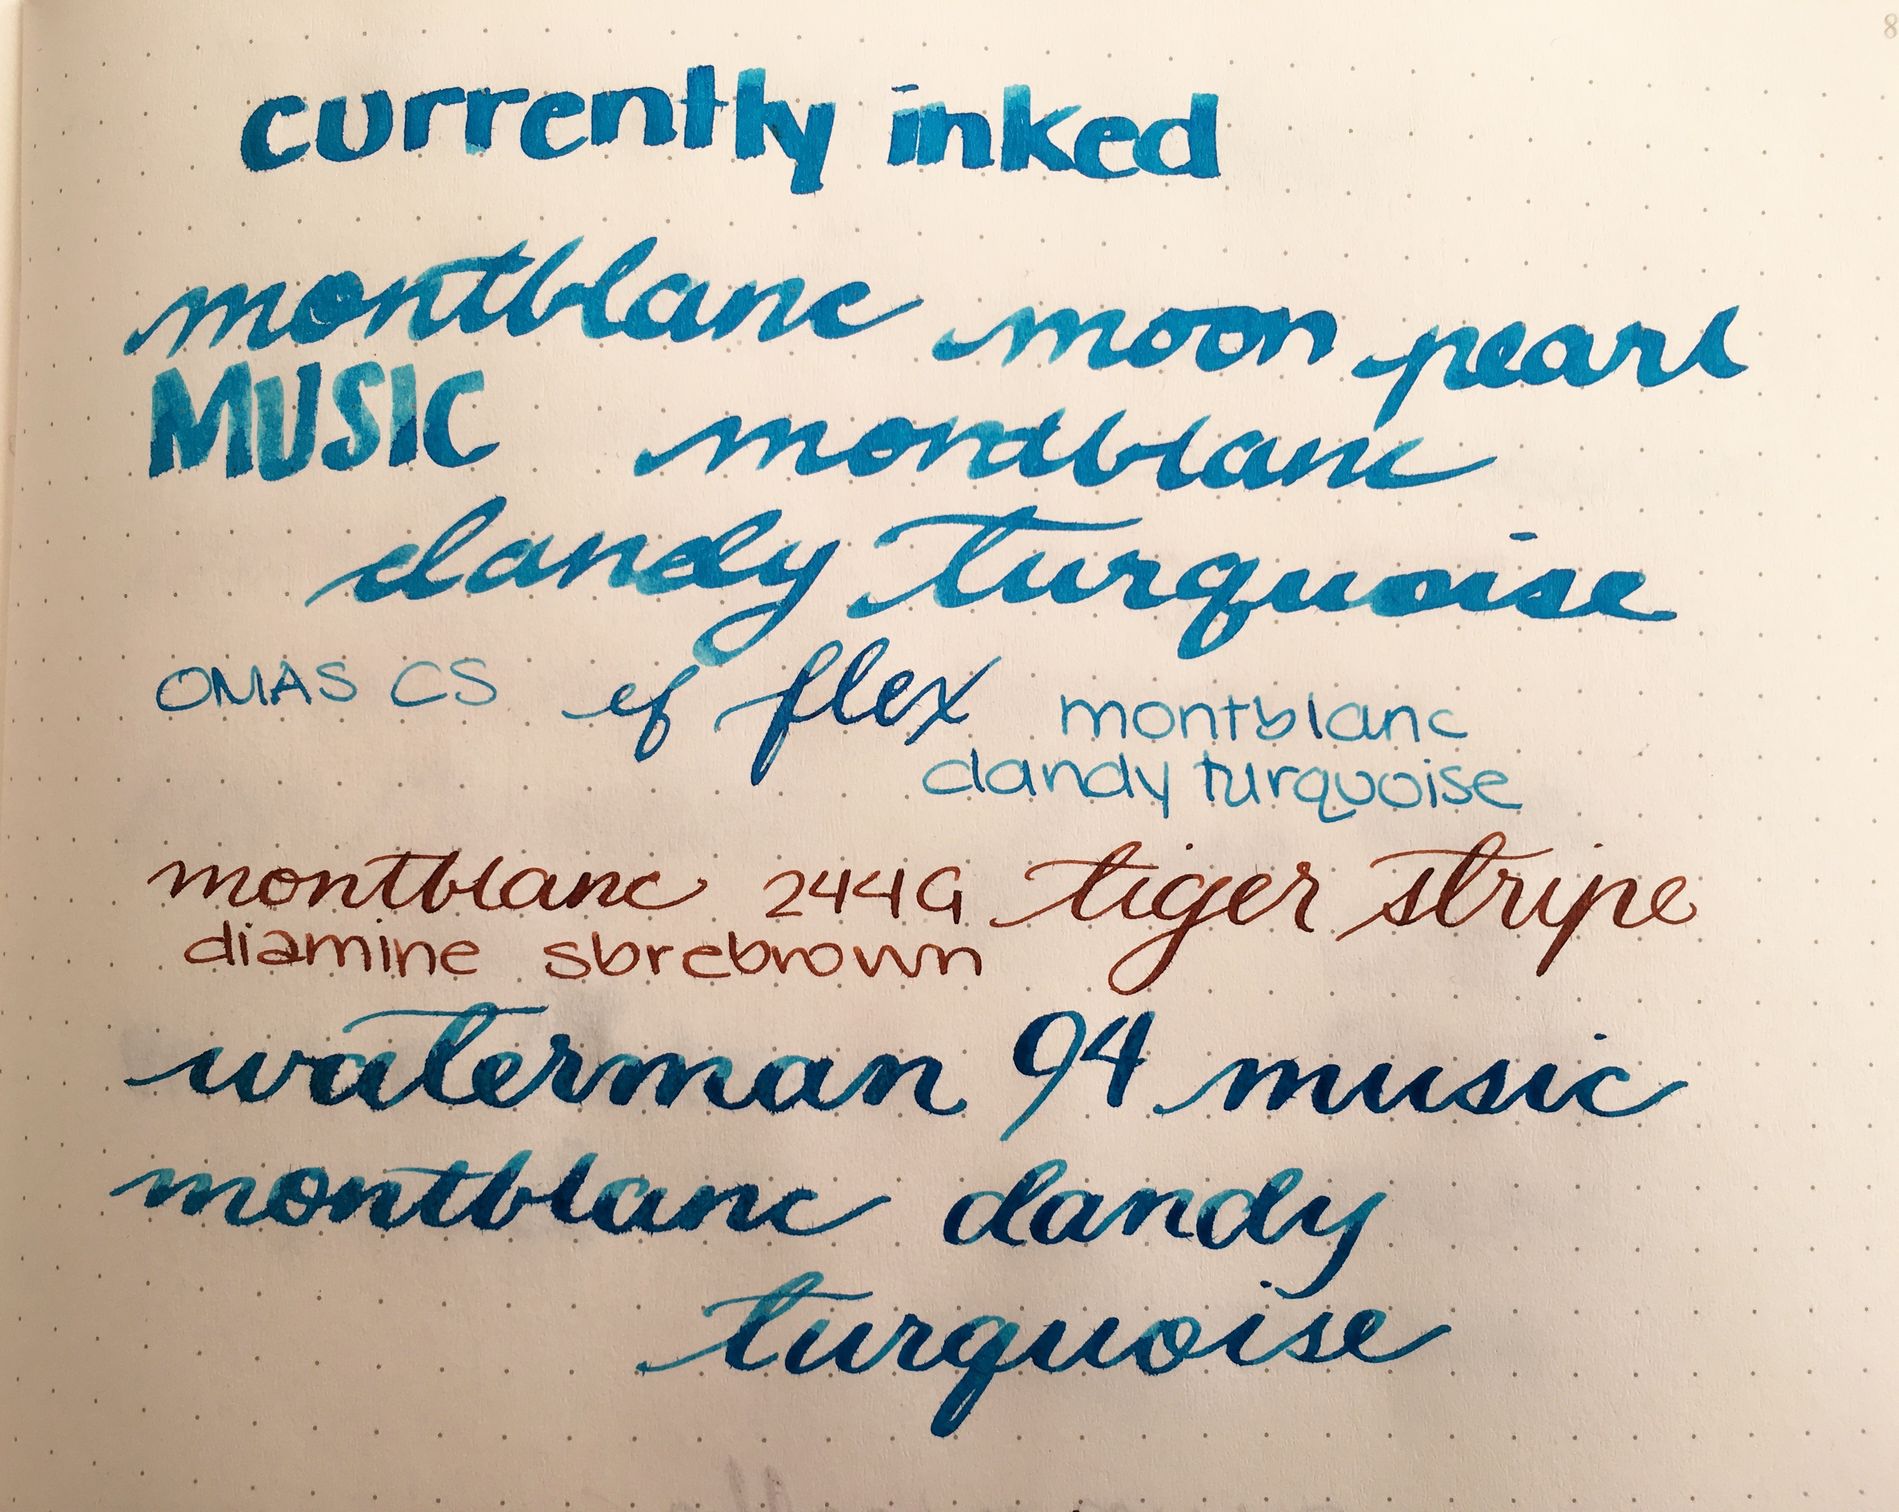 currently inked
montblanc moon pearl
MUSIC montblanc
dandy turquoise
OMAS CS ef flex montblanc
dandy turquoise
montblanc 244G tiger stripe
diamine sbrebrown
waterman 94 music
montblanc dandy
turquoise